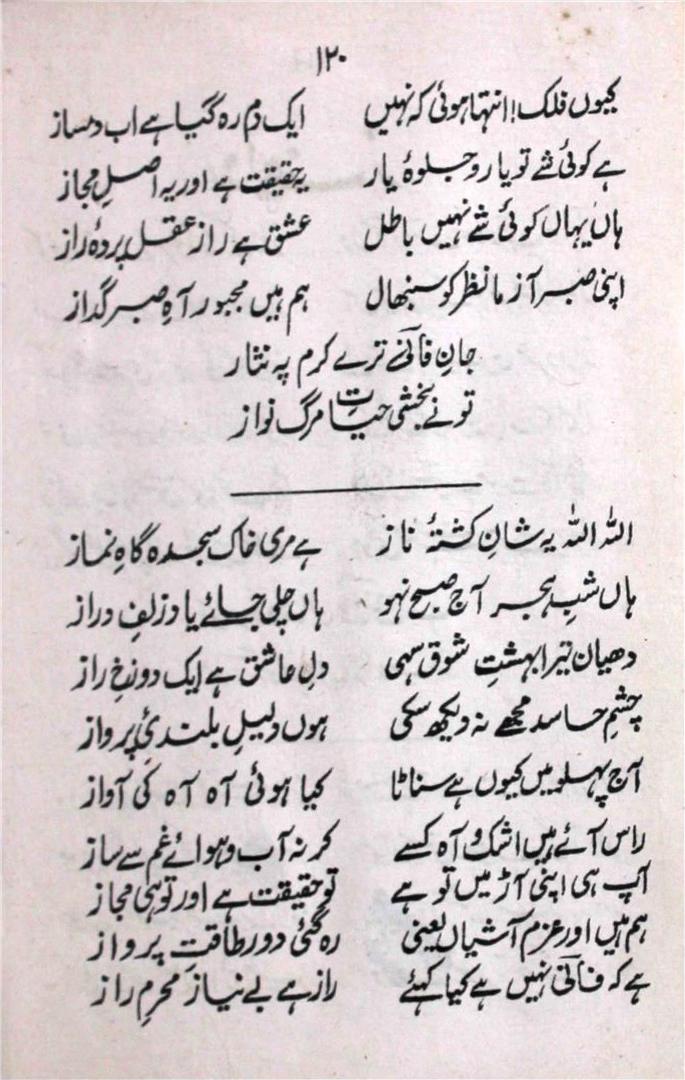 ۱۲۰
کیوں فلک! انتہا ہوئی کہ نہیں ایک دم رہ گیا ہے اب دمساز
ہے کوئی شے تو یار و جلوۂ یار یہ حقیقت ہے اور یہ اصلِ مجاز
ہاں یہاں کوئی شے نہیں باطل عشق ہے راز عقل پردۂ راز
اپنی صبر آزما نظر کو سنبھال ہم ہیں مجبور آہِ صبر گداز
جانِ فانی ترے کرم پہ نثار
تو نے بخشی حیات مرگ نواز
اللہ اللہ یہ شانِ کشتۂ ناز ہے مری خاک سجدہ گاہِ نماز
ہاں شبِ ہجر آج صبح نہو ہاں چلی جائے یادِ زلفِ دراز
دھیان تیرا بہشتِ شوق سہی دلِ عاشق ہے ایک دوزخِ راز
چشمِ حاسد مجھے نہ دیکھ سکی ہوں دلیلِ بلندیٔ پرواز
آج پہلو میں کیوں ہے سناٹا کیا ہوئی آہ آہ کی آواز
راس آئے ہیں اشک و آہ کسے کر نہ آب و ہوائے غم سے ساز
آپ ہی اپنی آڑ میں تو ہے تو حقیقت ہے اور تو ہی مجاز
ہم ہیں اور عزم آشیاں یعنی رہ گئی دور طاقتِ پرواز
ہے کہ فانی نہیں ہے کیا کہئے راز ہے بے نیاز محرمِ راز